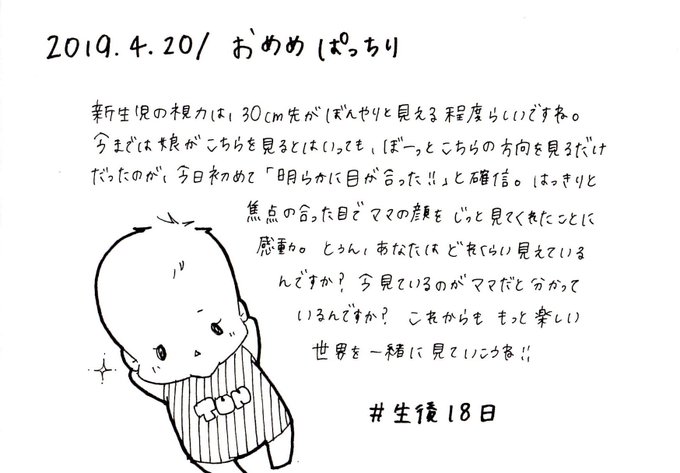 2019.4.20/ おめめ ぱっちり
新生児の視力は、30cm先がぼんやりと見える程度らしいですね。
今までは娘がこちらを見るとはいっても、ぼーっとこちらの方向を見るだけ
だったのが、今日初めて「明らかに目が合った!!」と確信。はっきりと
焦点の合った目でママの顔をじっと見てくれたことに
感動。とぅん、あなたはどれくらい見えている
んですか? 今見ているのがママだと分かって
いるんですか? これからももっと楽しい
世界を一緒に見ていこうね!!
TUN
#生後18日